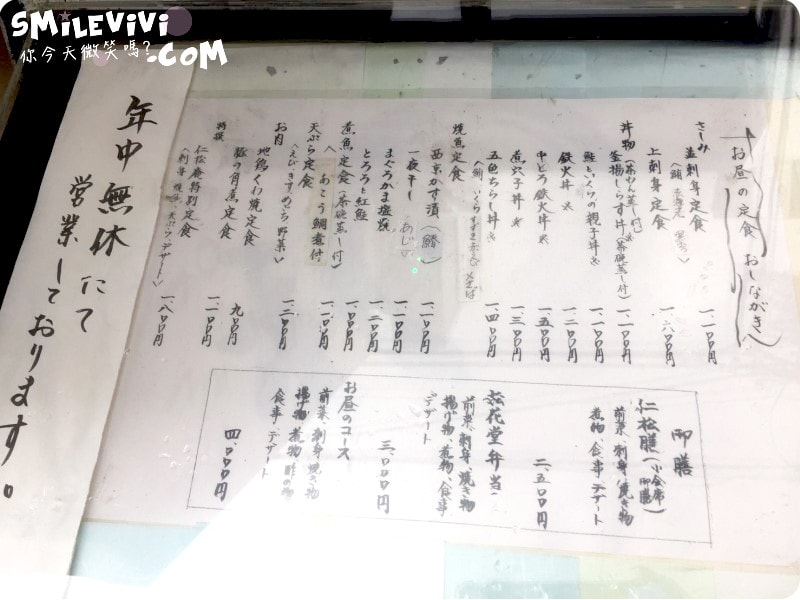 SMiLEViVi
你今天微笑嗎?.COM
お昼の定食 おしながき
さしみ
盖刺身定食
一、一〇〇円
上刺身定食
一、六〇〇円
丼物(茶わん蒸し付)
釜揚しらす丼(茶碗蒸し付)
一、一〇〇円
鮭といくらの親子丼
一、一〇〇円
鉄火丼
一、二〇〇円
中とろ鉄火丼
一、五〇〇円
煮穴子丼
一、三〇〇円
五色ちらし丼
一、四〇〇円
焼魚定食
西京かす漬(鰆)
一、一〇〇円
一夜干し
一、一〇〇円
まぐろかま塩焼
一、二〇〇円
とろろと紅鮭
一、〇〇〇円
煮魚定食(茶碗蒸し付)
あこう鯛煮付
一、一〇〇円
天ぷら定食
野菜
一、二〇〇円
お肉
地鶏くわ焼定食
九〇〇円
豚の角煮定食
一、一〇〇円
特撰
仁松庵特別定食
一、八〇〇円
御膳
仁松膳(小会席御膳)
前菜、刺身、焼き物
煮物、食事、デザート
二、五〇〇円
松花堂弁当
前菜、刺身、焼き物
揚げ物、煮物、食事
デザート
三、〇〇〇円
お昼のコース
前菜、刺身、焼き物
揚げ物、煮物、酢の物
食事、デザート
四、〇〇〇円
年中無休にて
営業しております。